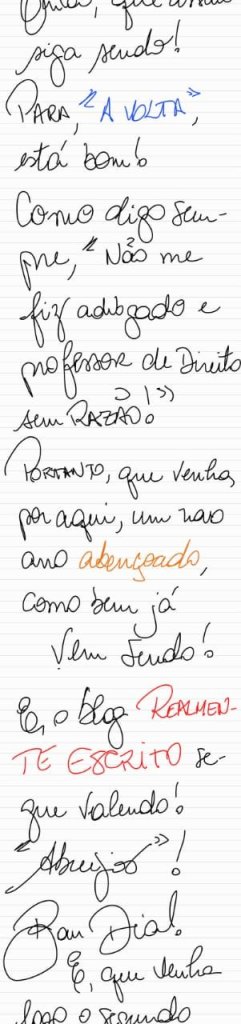 siga sendo!
PARA, "A VOLTA",
está bom!
Como digo sem-
pre, "Não me
fiz advogado e
professor de Direito
sem RAZÃO.
PORTANTO, que venha,
por aqui, um novo
ano abençoado,
como bem já
Vem Sendo!
E, o blog REALMEN-
TE ESCRITO se-
gue valendo!
"Abreijos"!
Bom Dia!
E, que venha
logo o segundo